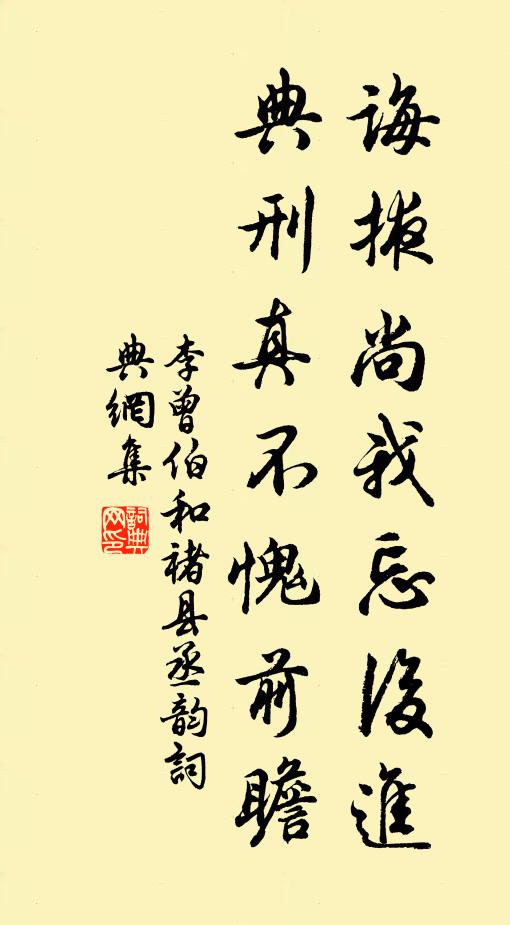 誨掖尚我忘後進
典刑真不愧前瞻
李曾伯和褚县丞韵詞
典網集
詞典
网印